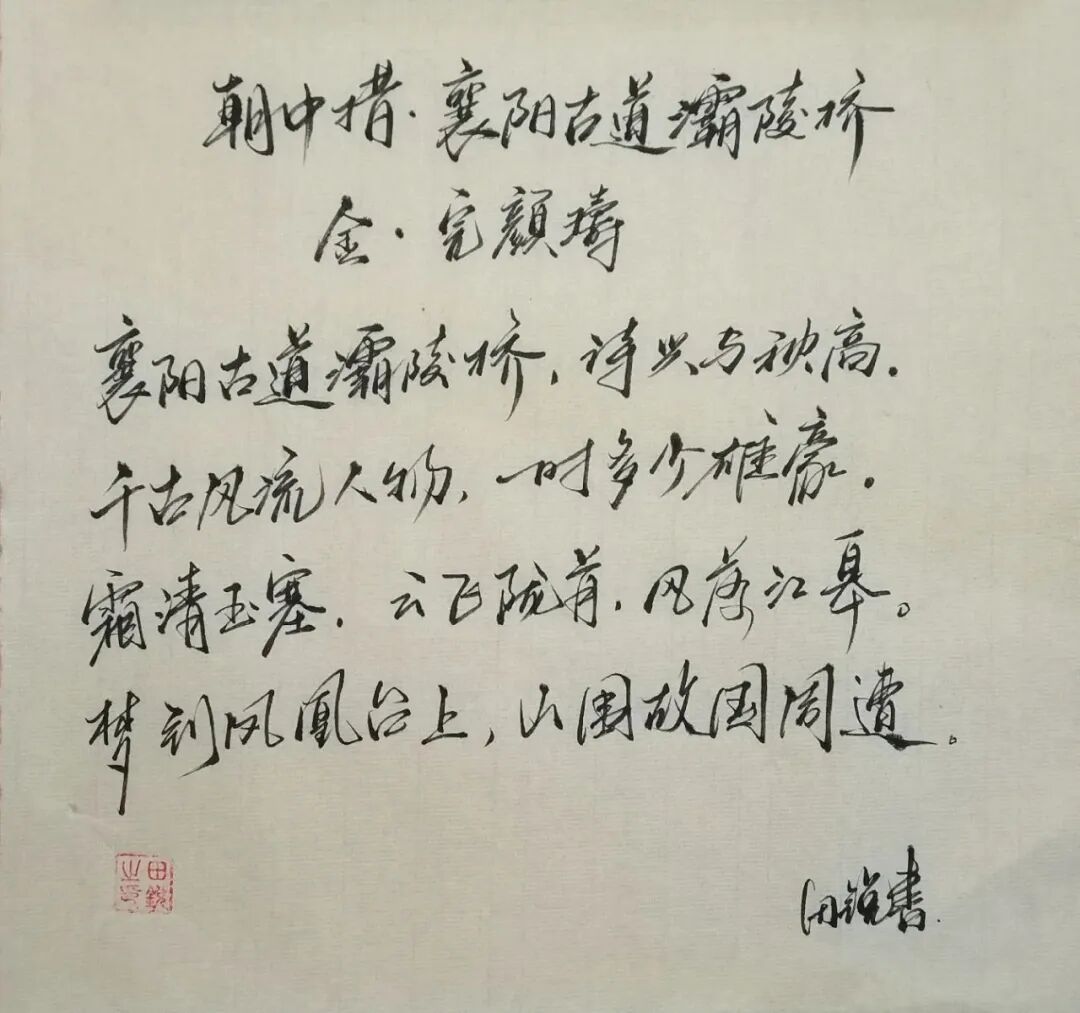 朝中措·襄阳古道灞陵桥
金·完颜璹
襄阳古道灞陵桥，诗兴与秋高。
千古风流人物，一时多少雄豪。
霜清玉塞，云飞陇首，风落江皋。
梦到凤凰台上，山围故国周遭。
田锐书
田锐之印